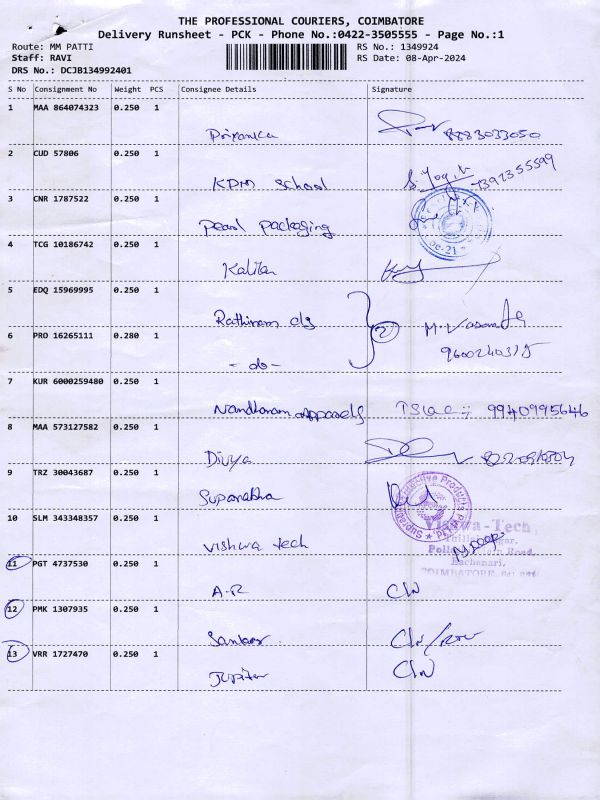 THE PROFESSIONAL COURIERS, COIMBATORE
Delivery Runsheet - PCK - Phone No.:0422-3505555 - Page No.:1
Route: MM PATTI RS No.: 1349924
Staff: RAVI RS Date: 08-Apr-2024
DRS No.: DCJB134992401
S No Consignment No Weight PCS Consignee Details Signature
1 MAA 864074323 0.250 1
Priyanka 8883033050
2 CUD 57806 0.250 1
KPM School 7392355599
3 CNR 1787522 0.250 1
Pearl Packaging
4 TCG 10186742 0.250 1
5 EDQ 15969995 0.250 1
Rathinam clg 2 M. Vasanth
6 PRO 16265111 0.280 1
- do - 9600240315
7 KUR 6000259480 0.250 1
Nandhanam apparels 9940995646
8 MAA 573127582 0.250 1
Divya
9 TRZ 30043687 0.250 1
Suprabha
10 SLM 343348357 0.250 1
Vishwa tech
Vishwa-Tech
COIMBATORE
11 PGT 4737530 0.250 1
A.R C/N
12 PMK 1307935 0.250 1
C/N/
13 VRR 1727470 0.250 1
Jupiter C/N